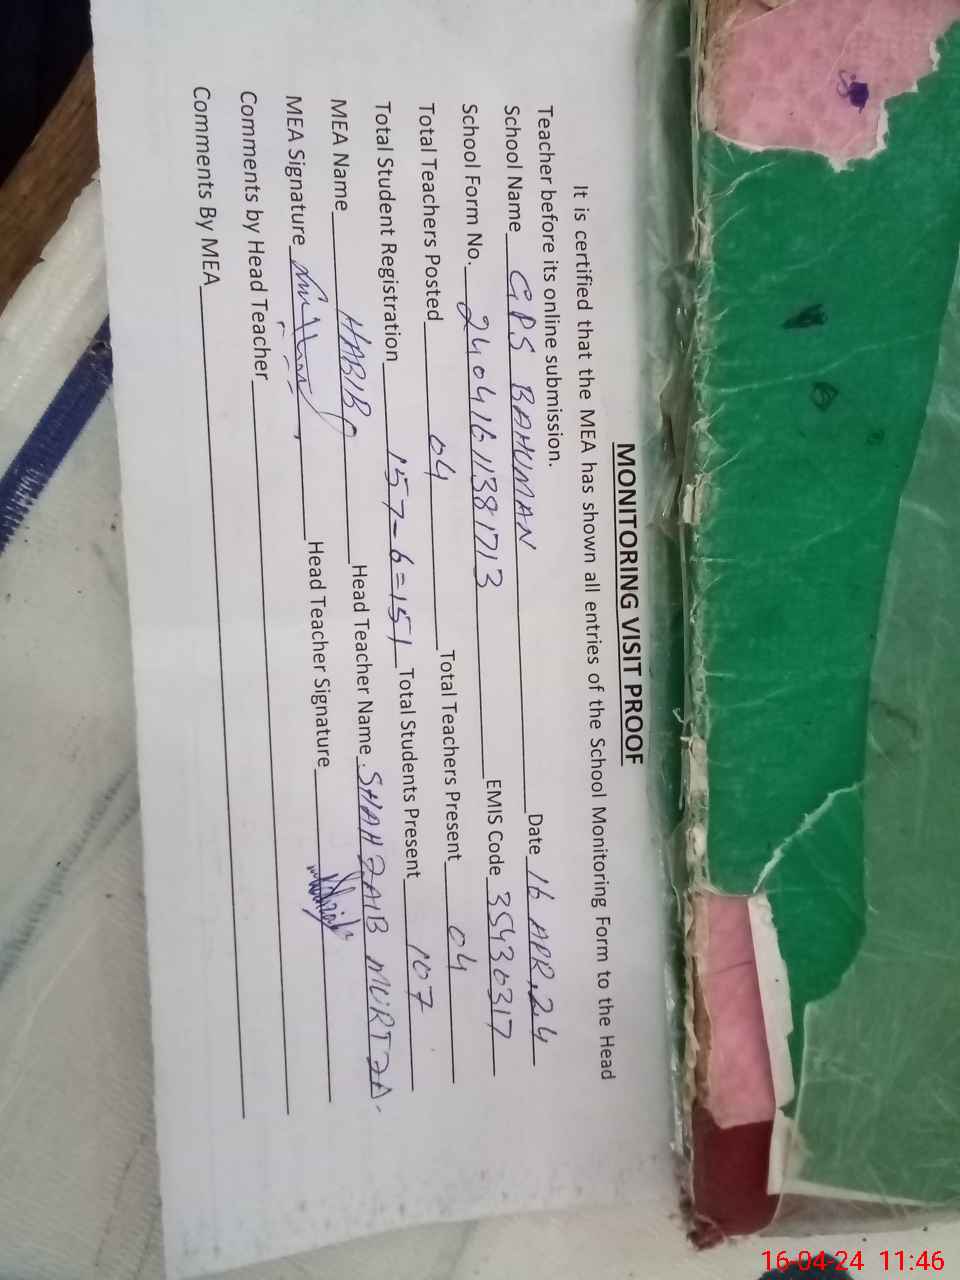 MONITORING VISIT PROOF
It is certified that the MEA has shown all entries of the School Monitoring Form to the Head
Teacher before its online submission.
School Name GPS BAHUMAN Date 16 APR, 24
School Form No. 24041611381713 EMIS Code 35430317
Total Teachers Posted 04 Total Teachers Present 04
Total Student Registration 157-6=151 Total Students Present 107
MEA Name HABIB Head Teacher Name SHAHZAIB MURTZA
MEA Signature Head Teacher Signature
Comments by Head Teacher
Comments By MEA
16-04-24 11:46